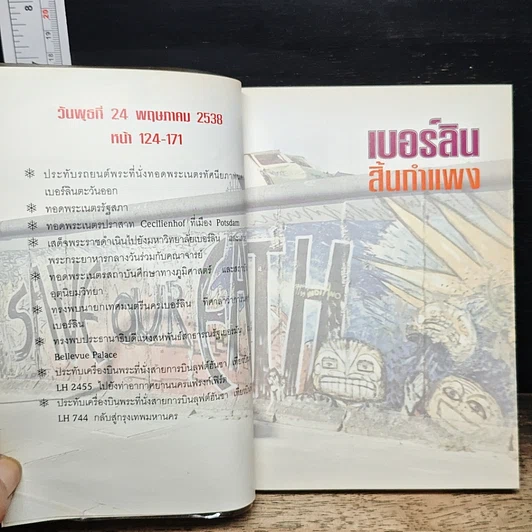 วันพุธที่ 24 พฤษภาคม 2538
หน้า 124-171
ประทับรถยนต์พระที่นั่งทอดพระเนตรทัศนียภาพ
เบอร์ลินตะวันออก
ทอดพระเนตรรัฐสภา
ทอดพระเนตรปราสาท Cecilienhof ที่เมือง Potsdam
เสด็จพระราชดำเนินไปยังมหาวิทยาลัยเบอร์ลิน
พระกระยาหารกลางวันร่วมกับคณาจารย์
ทอดพระเนตรสถาบันศึกษาทางภูมิศาสตร์
อุตุนิยมวิทยา
ทรงพบนายกเทศมนตรีนครเบอร์ลิน ที่ศาลาว่าการ
เบอร์ลิน
ทรงพบประธานาธิบดีแห่งสหพันธ์สาธารณรัฐเยอรมัน
Bellevue Palace
ประทับเครื่องบินพระที่นั่งสายการบินลุฟต์ฮันซา เที่ยวบิน
LH 2455 ไปยังท่าอากาศยานนครแฟรงก์เฟิร์ต
ประทับเครื่องบินพระที่นั่งสายการบินลุฟต์ฮันซา เที่ยวบิน
LH 744 กลับสู่กรุงเทพมหานคร
เบอร์ลิน
สิ้นกำแพง
SAVE OUR EARTH